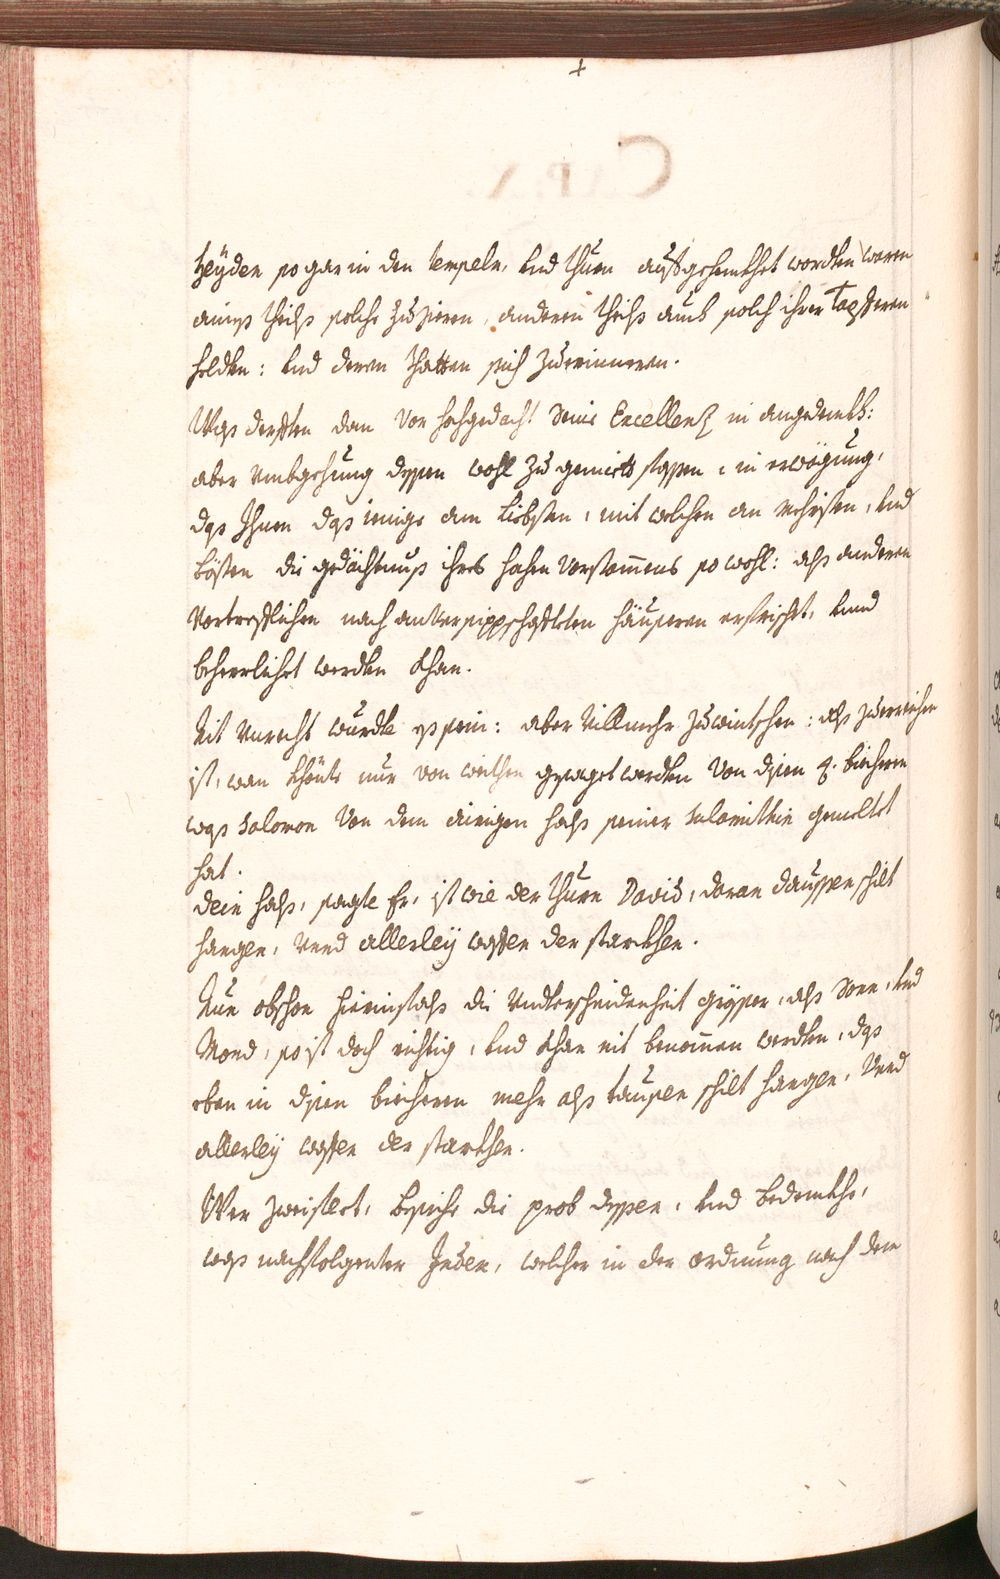 Heÿden so gar in den tempeln, und thürn aufgehenkhet wordten waren
ainss theilss solche zu zieren, anderen theilss auch solch ihrer Tapferen
heldten: und deren thatten sich zuerinneren.
Wass dessten dan von hochgedacht Seine Excellenz in angedenkh:
aber umbgehung dessen wohl zu gemieth fassen, in erwögung,
dass Ihnen dass ienige am liebsten, mit welchen am mehristen, und
bösten die gedächtnuss ihres hohen Vorstammens so wohl: alss anderen
Vortreflichen nach anversippschafteten häuseren erfrischet, unnd
beheerlichet werdten khan.
Nit unrecht würdte es sein: aber villmehr zuwintschen: alss zuerreichen
ist, wan khönte nur von weithen gesaget werdten von disen 8. biecheren
wass Salomon von dem ainigen halss seiner Sulamithin gemeltet
hat.
dein halss, sagte Er, ist wie der thurn David, daran daussen schilt
hangen, unnd allerleÿ waffen der starckhen.
Nun obschon hierinfahlss die undterscheidenheit grösser, alss Sonn, und
Mond, so ist doch richtig, und khan nit benommen werdten, dass
eben in disen biecheren mehr alss tausen schilt hangen, unnd
allerleÿ waffen der starkhen.
Wer zweiflet, besiche die prob dessen, und bedenkhe,
wass nachfolgenter Index, welcher in der ordnung nach dem